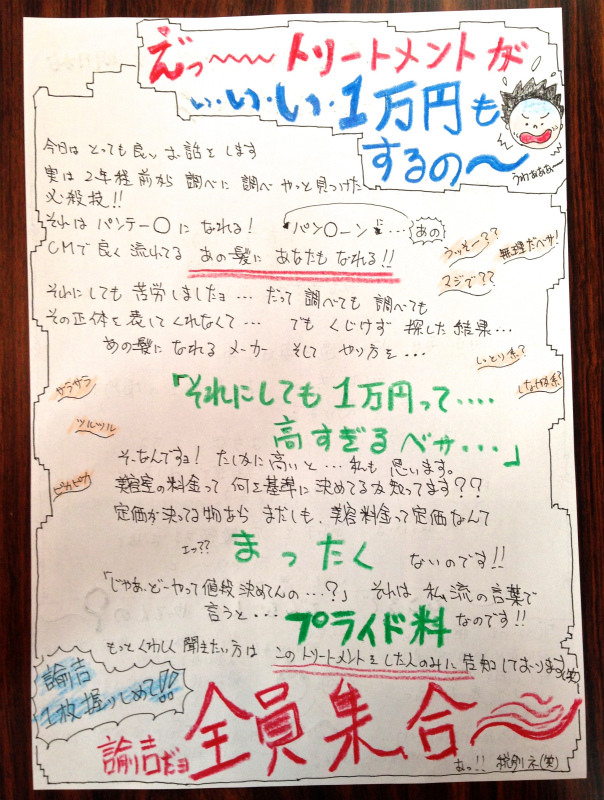 えっ〜〜〜トリートメントが
い・い・い・1万円も
するの〜
うわぁあぁ〜
今日は とっても良い お話をします
実は 2年程前から 調べに 調べ やっと見つけた
必殺技!!
それは パンテー〇 に なれる! パン〇ーン じ… あの
CMで 良く 流れてる あの髪に あなたも なれる!!
うっそー??
無理だべサ!
マジで??
それにしても 苦労しましたョ… だって 調べても 調べても
その正体を 表してくれなくて… でも くじけず 探した 結果…
あの髪に なれる メーカー そして やり方を…
しっとり系?
しなやか系?
サラサラ
ツルツル
ピカピカ
「それにしても 1万円って‥‥
高すぎるべサ…」
そーなんですョ! たしかに 高いと… 私も 思います。
美容室の料金って 何を基準に 決めてるか知ってます??
定価が 決ってる物なら まだしも、美容料金って 定価なんて
エッ?? まったく ないのです!!
「じゃあ、どーやって値段 決めてんの…?」 それは 私流の言葉で
言うと… プライド料 なのです!!
もっと くわしく 聞きたい方は このトリートメントをした人のみに 告知しております(笑)
諭吉
1枚握りしめて!!
諭吉だョ 全員集合〜
あっ!! 税別ネ(笑)